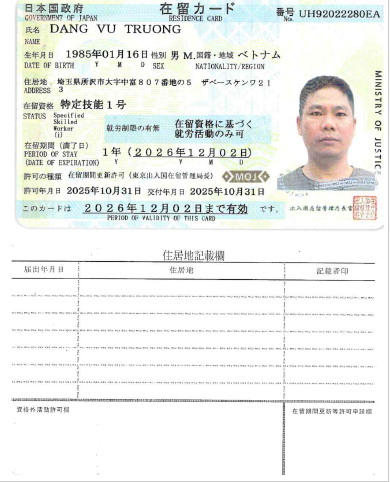 日本国政府 在留カード 番号 UH92022280EA
GOVERNMENT OF JAPAN RESIDENCE CARD
氏名 DANG VU TRUONG
NAME
生年月日 1985年01月16日 性別 男 M. 国籍・地域 ベトナム
DATE OF BIRTH Y M D SEX NATIONALITY/REGION
住居地 埼玉県所沢市大字中富807番地の5 ザベースケンワ21
ADDRESS 3
在留資格 特定技能1号
STATUS Specified
Skilled
Worker
(i)
就労制限の有無 在留資格に基づく
就労活動のみ可
在留期間(満了日) 1年(2026年12月02日)
PERIOD OF STAY Y M Y M D
(DATE OF EXPIRATION)
許可の種類 在留期間更新許可(東京出入国在留管理局長)
MOJ
許可年月日 2025年10月31日 交付年月日 2025年10月31日
このカードは 2026年12月02日まで有効 です。
PERIOD OF VALIDITY OF THIS CARD
出入国在留管理庁長官
MINISTRY OF JUSTICE
住居地記載欄
届出年月日 住居地 記載者印
資格外活動許可欄 在留期間更新等許可申請欄